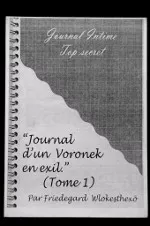 Journal Intime
Top secret
"Journal
d'un Voronek
en exil."
(Tome 1)
Par Friedegard Wlokesthexö